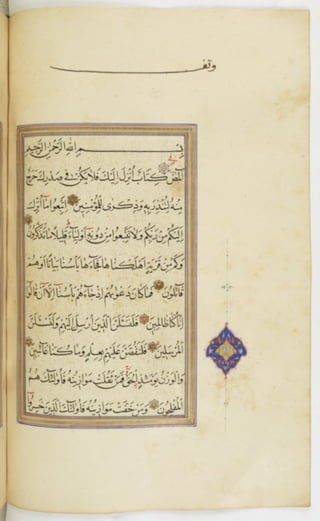 وقف
بِسْمِ اللهِ الرَّحْمٰنِ الرَّحِيمِ
المص كِتَابٌ اُنْزِلَ اِلَيْكَ فَلَا يَكُنْ فِي صَدْرِكَ حَرَجٌ
مِنْهُ لِتُنْذِرَ بِهِ وَذِكْرٰى لِلْمُؤْمِنِينَ اِتَّبِعُوا مَا اُنْزِلَ
اِلَيْكُمْ مِنْ رَبِّكُمْ وَلَا تَتَّبِعُوا مِنْ دُونِهِ اَوْلِيَاءَ قَلِيلًا مَا تَذَكَّرُونَ
وَكَمْ مِنْ قَرْيَةٍ اَهْلَكْنَاهَا فَجَاءَهَا بَأْسُنَا بَيَاتًا اَوْ هُمْ
قَائِلُونَ فَمَا كَانَ دَعْوٰيهُمْ اِذْ جَاءَهُمْ بَأْسُنَا اِلَّا اَنْ قَالُوا
اِنَّا كُنَّا ظَالِمِينَ فَلَنَسْئَلَنَّ الَّذِينَ اُرْسِلَ اِلَيْهِمْ وَلَنَسْئَلَنَّ
الْمُرْسَلِينَ فَلَنَقُصَّنَّ عَلَيْهِمْ بِعِلْمٍ وَمَا كُنَّا غَائِبِينَ
وَالْوَزْنُ يَوْمَئِذٍ الْحَقُّ فَمَنْ ثَقُلَتْ مَوَازِينُهُ فَاُولٰئِكَ هُمُ
الْمُفْلِحُونَ وَمَنْ خَفَّتْ مَوَازِينُهُ فَاُولٰئِكَ الَّذِينَ خَسِرُوا